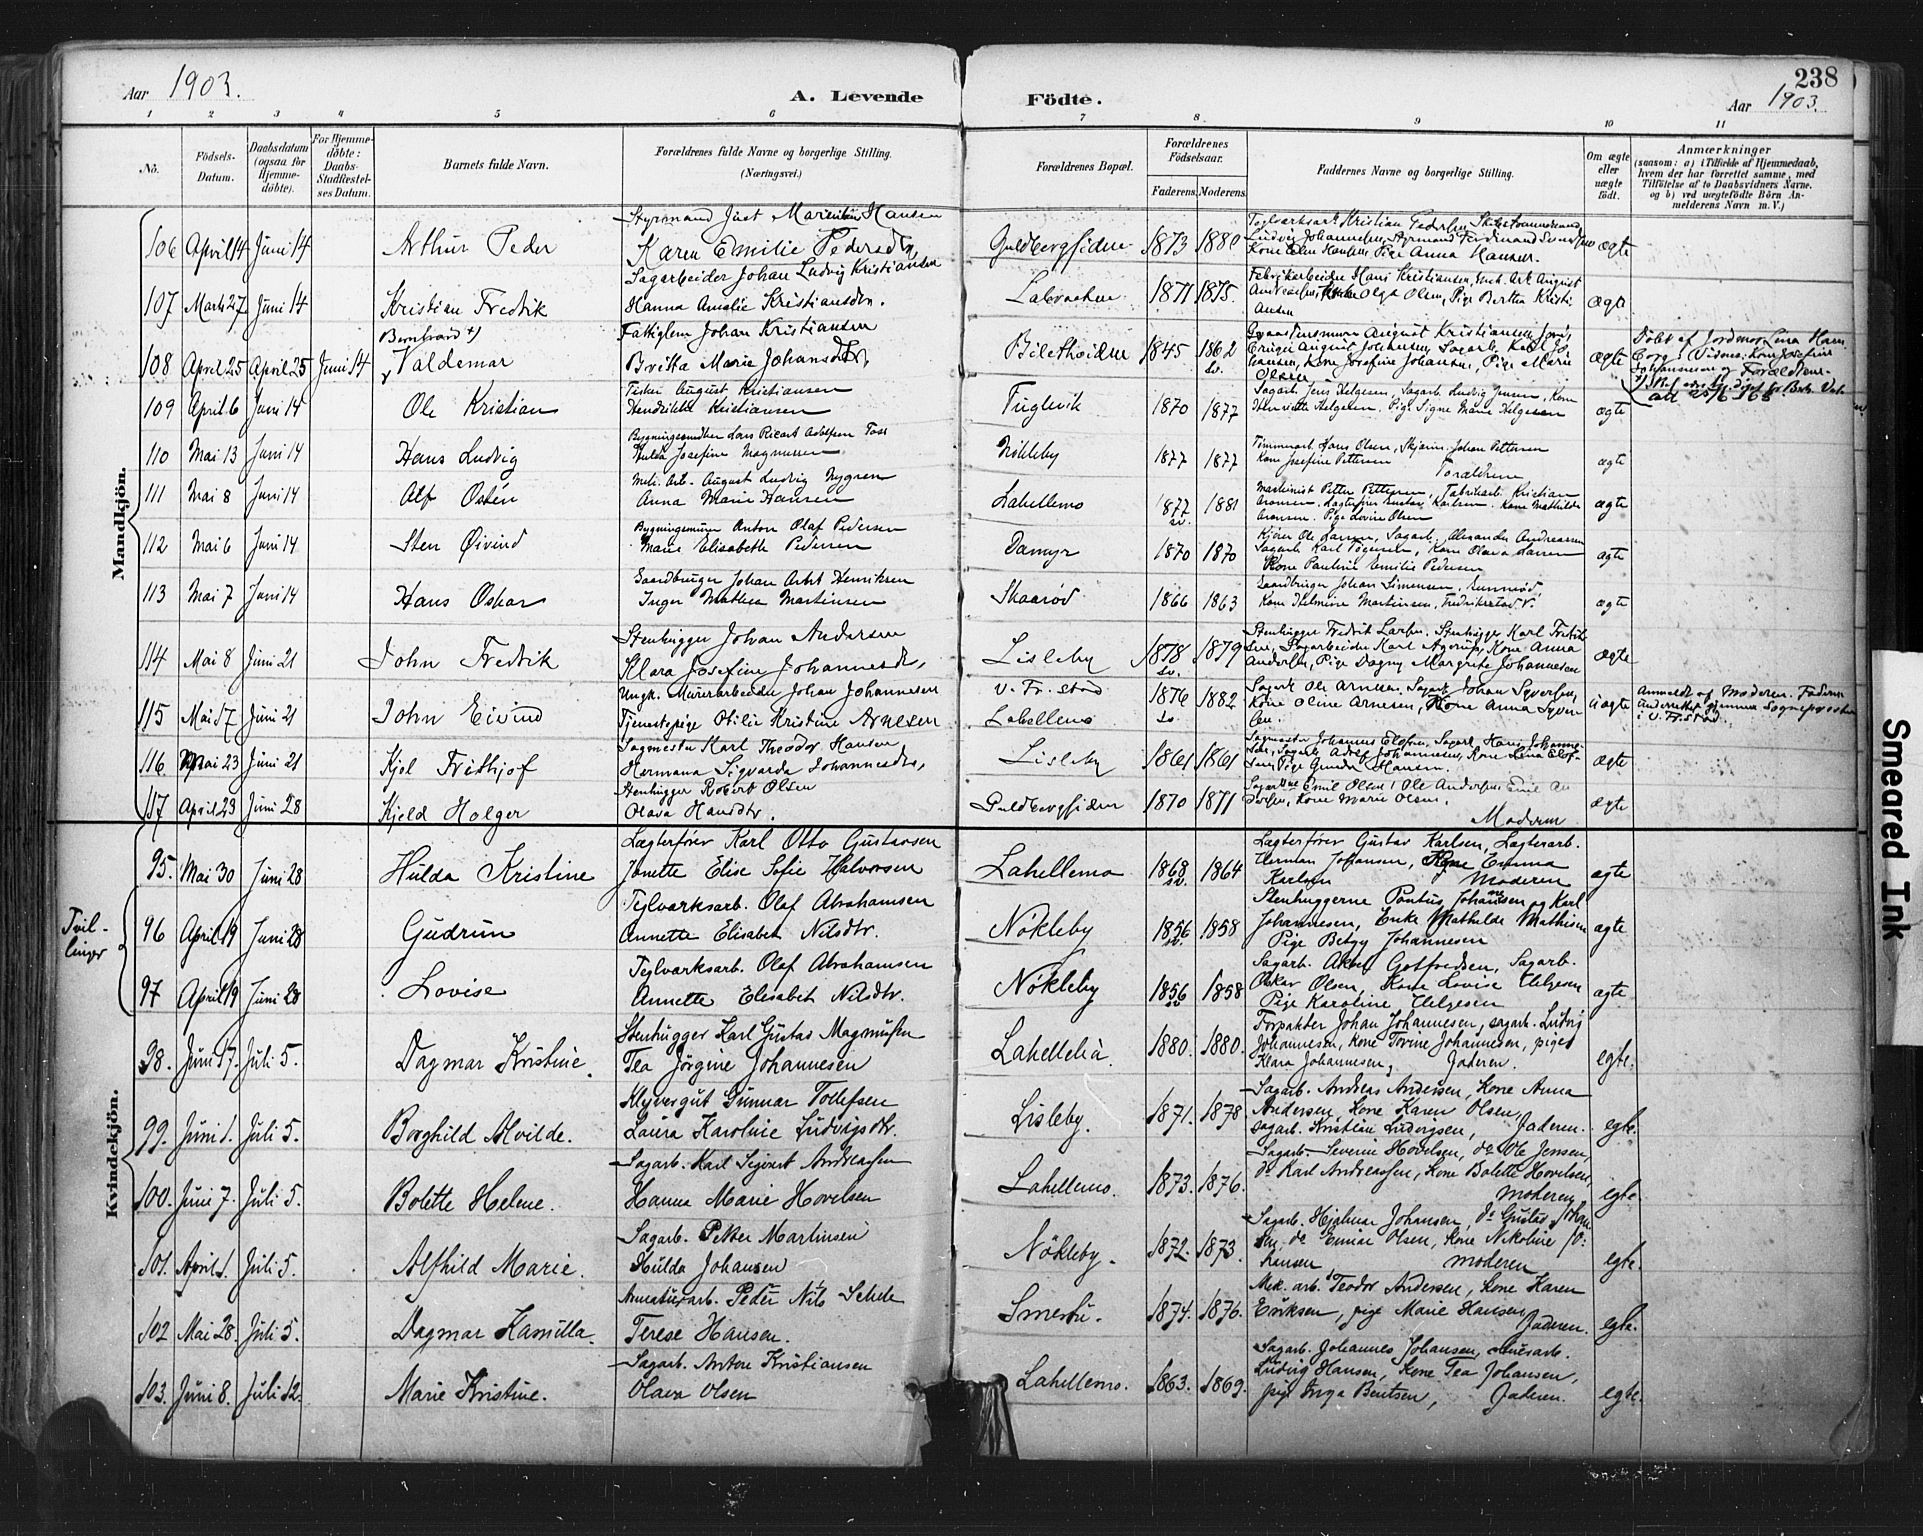 Aar 1903.
A. Levende Födte.
238
Aar 1903.
1 2 3 4 5 6 7 8 9 10 11
No.
Födsels-Datum.
Daabsdatum (ogsaa for Hjemmedöbte).
For Hjemmedöbte: Daabs-Stadfæstelses Datum.
Barnets fulde Navn.
Forældrenes fulde Navne og borgerlige Stilling. (Næringsvei.)
Forældrenes Bopæl.
Forældrenes Födselsaar.
Faderens. Moderens.
Faddernes Navne og borgerlige Stilling.
Om ægte eller uægte födt.
Anmærkninger
(saasom: a) i Tilfælde af Hjemmedaab,
hvem der har forrettet samme, med
Tilföielse af to Daabsvidners Navne.
og b) ved uægtefödte Börn Anmelderens Navn m. V.)
Mandkjön.
106 April 14 Juni 14 Arthur Peder
Styrmand Just Marentius Hansen
Karen Emilie Pedersdtr
Guldbergsiden 1873 1880
Kone Ellen Hansen, Pige Anna Hansen. ægte
107 Marts 27 Juni 14 Kristian Fredrik
Sagarbeider Johan Ludvig Kristiansen
Hanna Amalie Kristiansdtr.
1871 1875.
Fabrikarbeider Hans Kristiansen, August
Andreasen, Olga Olsen, Pige Bertha Kristiansen ægte
108 April 25 April 25 Juni 14 Bernhard +)
Valdemar
Fattiglem Johan Kristiansen
Britta Marie Johansdtr.
1845 1862 sv.
August Kristiansen
August Johansen, Sagarb. Karl Johansen, Kone Josefine Johansen, Pige Marie Olsen ægte
Döbt af Jordmor Lena
Vidner: Kone Josefine
Johannesen og Forældrene.
109 April 6 Juni 14 Ole Kristian
Fisker August Kristiansen
Hendrikke Kristiansen
Fuglevik 1870 1877
Sagarb. Jens Helgesen, Sagarb. Ludvig Jensen, Kone
Henriette Helgesen. Pige Signe Marie Helgesen ægte
110 Mai 13 Juni 14 Hans Ludvig
Bygningssnedker Lars Ricart Adolfsen Foss
Hulda Josefine Magnussen
Nökleby 1877 1877
Tömmerarb. Hans Olsen, Johan Pettersen
Kone Josefine Pettersen Forældrene ægte
111 Mai 8 Juni 14 Alf Östen
Mek. Arb. August Ludvig Nygren
Anna Marie Hansen
Lahellemo 1877 sv. 1881
Maskinist Petter Pettersen, Fabrikarb. Kristian
Aronsen, Lagterfører Gustav Karlsen. Kone Mathilde
Aronsen. Pige Lovise Olsen ægte
112 Mai 6 Juni 14 Sten Øivind
Bygningsmurer Anton Olaf Pedersen
Marie Elisabeth Pedersen
Damyr 1870 1870
Kjører Ole Larsen, Sagarb. Alexander Andreassen
Sagarb. Karl Kone Olava Larsen
Kone Pauline Emilie Pedersen ægte
113 Mai 7 Juni 14 Hans Oskar
Gaardbruger Johan Henriksen
Inger Mathea Martinsen
Skaaröd 1866 1863
Gaardbruger Johan Simensen,
Kone Helmine Martinsen, Fredrikstad V. ægte
114 Mai 8 Juni 21 John Fredrik
Stenhugger Johan Andersen
Klara Josefine Johannesdtr.
Lisleby 1878 sv. 1879
Stenhugger Fredrik Larsen, Stenhugger Karl Fredriksen, Sagarbeider Karl Agerup, Kone Anna
Andersen, Pige Dagny Margrete Johannesen ægte
115 Mai 17 Juni 21 John Eivind
Ungk. Murerarbeider Johan Johannesen
Tjenestepige Otilie Kristine Arnesen
V. Fr.stad
Lahellemo 1876 sv. 1882
Sagarb. Ole Arnesen, Sagarb. Johan Syversen,
Kone Oline Arnesen, Kone Anna Syversen. uægte
Anmeldt af Moderen. Faderen
gjennem Sognepresten
i V. Fr.stad.
116 Mai 23 Juni 21 Kjel Frithjof
Sagmester Karl Theodor Hansen
Hermana Sigvarda Johannesdtr.
Lisleby 1861 1861
Sagmester Johannes Elofsen, Sagarb. Hans Johannesen, Sagarb. Adolf Johannesen, Kone Lena Elofsen, Pige Gunda Hansen. ægte
117 April 23 Juni 28 Kjeld Holger
Stenhugger Robert Olsen
Olava Hansdtr.
Guldbergsiden 1870 1871
Emil Olsen, Ole Andersen, Emil Andersen, Kone Marie Olsen. Moderen ægte
Kvindekjön.
95. Mai 30 Juni 28 Hulda Kristine
Lægterfører Karl Otto Gustavsen
Janette Elise Sofie Halvorsen
Lahellemo 1868 sv. 1864
Lagterfører Gustav Karlsen, Lagterarb.
Herman Johansen, Kone Emma
Karlsen Moderen ægte
Tvillinger
96 April 19 Juni 28 Gudrun
Teglværksarb. Olaf Abrahamsen
Annette Elisabet Nilsdtr.
Nökleby 1856 sv. 1858
Stenhuggerne Pontus Johannesen og Karl
Johannesen, Enke Mathilde Mathisen
Pige Betzy Johannesen ægte
97 April 19 Juni 28 Lovise
Teglværksarb. Olaf Abrahamsen
Annette Elisabet Nilsdtr.
Nökleby 1856 sv 1858
Sagarb. Aksel Gotfredsen, Sagarb.
Oskar Olsen, Kone Lovise Helgesen
Pige Karoline Helgesen ægte
98. Juni 17. Juli 5. Dagmar Kristine.
Stenhugger Karl Gustav Magnussen
Tea Jörgine Johannesen
Lahellelia. 1880. 1880.
Forpakter Johan Johannesen, sagarb. Ludvig
Johannesen, kone Torine Johannesen, pige
Klara Johannesen, Faderen. egte.
99. Juni 1. Juli 5. Borghild Alvilde.
Klyvergut Gunnar Tollefsen
Laura Karoline Ludvigsdtr.
Lisleby. 1871. 1878
Sagarb. Andreas Andersen, kone Anna
Andersen, kone Karen Olsen,
sagarb. Kristian Ludvigsen, Faderen. egte.
100. Juni 7. Juli 5. Bolette Helene.
Sagarb. Karl Sigvart Andreassen
Hanna Marie Hovelsen
Lahellemo. 1873. 1876.
Sagarb. Severin Hovelsen, do Ole Jensen,
do Karl Andreassen, kone Bolette Hovelsen,
moderen egte.
101. April 1. Juli 5. Alfhild Marie.
Sagarb. Petter Martinsen
Hulda Johansen
Nökleby. 1872. 1873.
Sagarb. Hjalmar Johansen, do Gustav Johansen, do Einar Olsen, kone Nikoline Johansen moderen egte.
102 Mai 28. Juli 5. Dagmar Kamilla.
Armaturarb. Peder Nils Schele
Terese Hansen.
Smertu. 1874. 1876.
Mek. arb. Teodor Andersen, kone Karen
Eriksen, pige Marie Hansen, Faderen. egte.
103. Juni 8. Juli 12. Marie Kristine.
Sagarb. Anton Kristiansen
Olava Olsen
Lahellemo. 1863. 1869.
Sagarb. Johannes Johansen,
Ludvig Hansen, kone Tea Johansen,
pige Inga Bentsen, Faderen. egte.
Smeared Ink